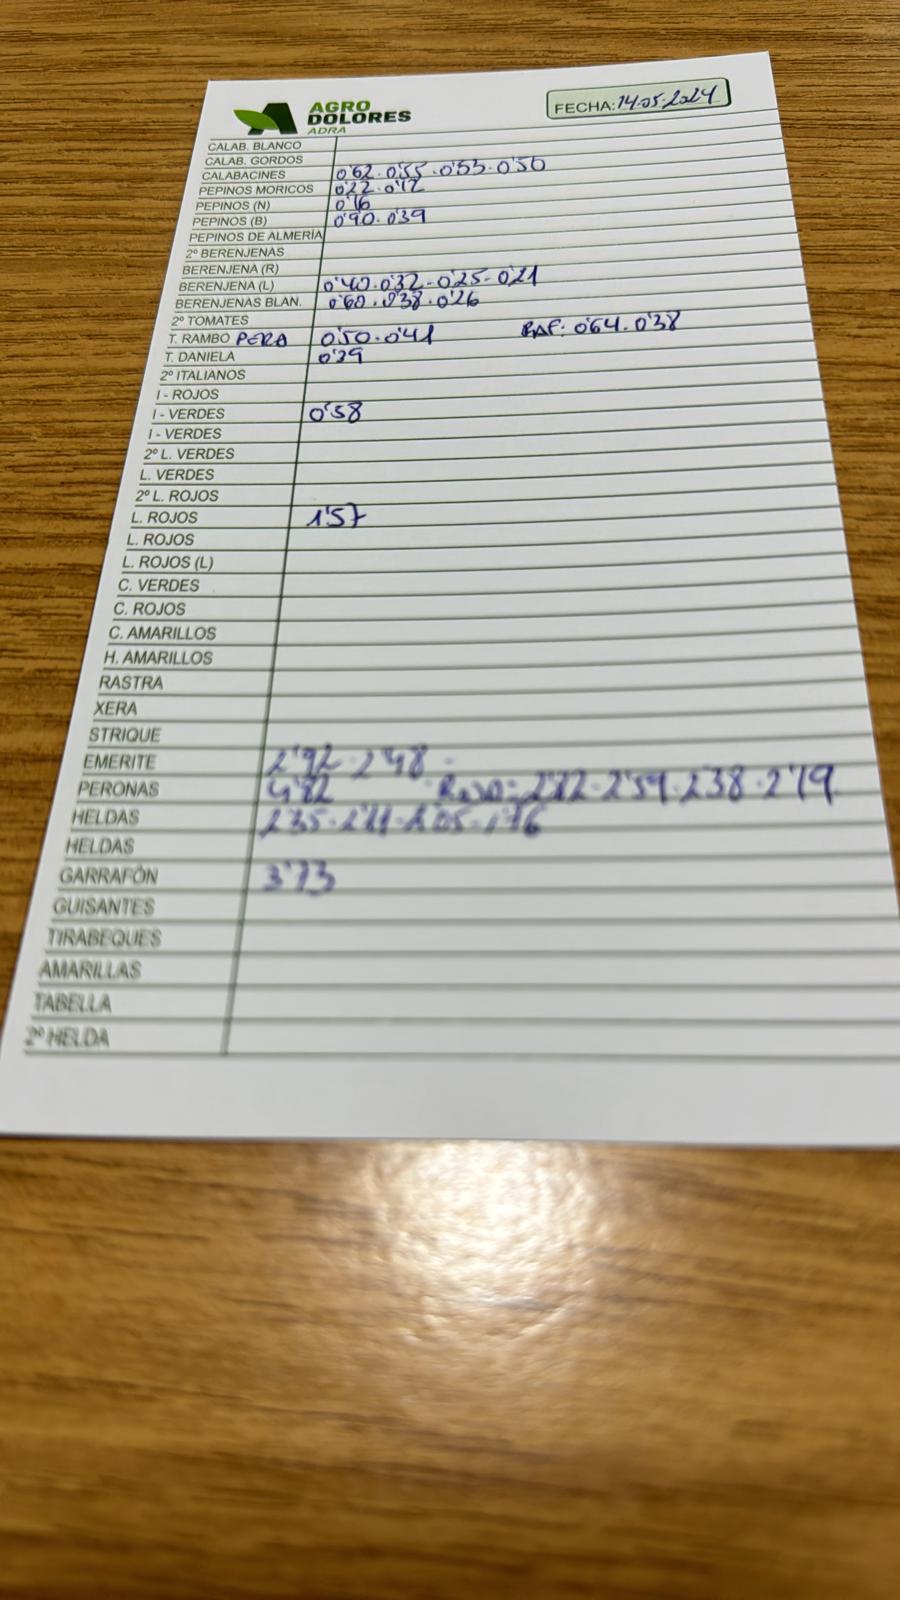 AGRO
DOLORES
ADRA
FECHA: 14.05.2024
CALAB. BLANCO
CALAB. GORDOS
CALABACINES 0'62 . 0'55 . 0'53 . 0'50
PEPINOS MORICOS 0'22 . 0'12
PEPINOS (N) 0'16
PEPINOS (B) 0'90 . 0'39
PEPINOS DE ALMERÍA
2º BERENJENAS
BERENJENA (R)
BERENJENA (L) 0'40 . 0'32 - 0'25 - 0'21
BERENJENAS BLAN. 0'60 . 0'38 . 0'26
2º TOMATES
T. RAMBO PERA 0'50 . 0'41 RAF: 0'64 . 0'38
T. DANIELA 0'39
2º ITALIANOS
I - ROJOS
I - VERDES 0'58
I - VERDES
2º L. VERDES
L. VERDES
2º L. ROJOS
L. ROJOS 1'57
L. ROJOS
L. ROJOS (L)
C. VERDES
C. ROJOS
C. AMARILLOS
H. AMARILLOS
RASTRA
XERA
STRIQUE
EMERITE 2'92 . 2'48 -
PERONAS 4'82 2'59 . 2'38 . 2'19
HELDAS 2'35 . 2'21 -
HELDAS
GARRAFÓN 3'73
GUISANTES
TIRABEQUES
AMARILLAS
TABELLA
2º HELDA